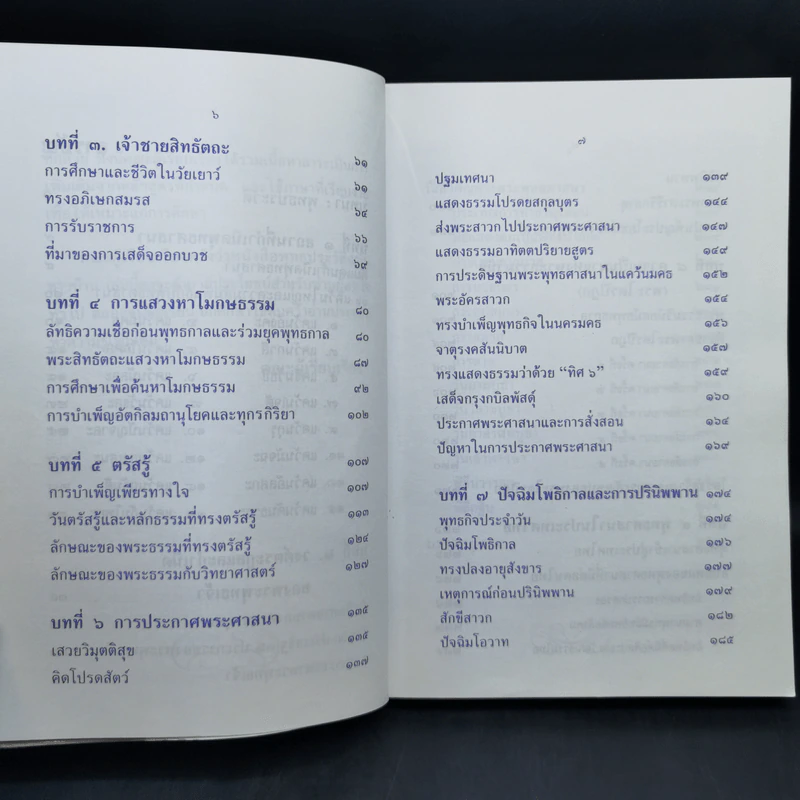 ๖
บทที่ ๓. เจ้าชายสิทธัตถะ ๖๑
การศึกษาและชีวิตในวัยเยาว์ ๖๑
ทรงอภิเษกสมรส ๖๔
การรับราชการ ๖๖
ที่มาของการเสด็จออกบวช ๖๙
บทที่ ๔ การแสวงหาโมกษธรรม ๘๐
ลัทธิความเชื่อก่อนพุทธกาลและร่วมยุคพุทธกาล ๘๐
พระสิทธัตถะแสวงหาโมกษธรรม ๘๗
การศึกษาเพื่อค้นหาโมกษธรรม ๙๒
การบำเพ็ญอัตกิลมถานุโยคและทุกรกิริยา ๑๐๒
บทที่ ๕ ตรัสรู้ ๑๐๗
การบำเพ็ญเพียรทางใจ ๑๐๗
วันตรัสรู้และหลักธรรมที่ทรงตรัสรู้ ๑๑๓
ลักษณะของพระธรรมที่ทรงตรัสรู้ ๑๒๔
ลักษณะของพระธรรมกับวิทยาศาสตร์ ๑๒๗
บทที่ ๖ การประกาศพระศาสนา ๑๓๕
เสวยวิมุตติสุข ๑๓๕
คิดโปรดสัตว์ ๑๓๗
๗
ปฐมเทศนา ๑๓๙
แสดงธรรมโปรดยสกุลบุตร ๑๔๔
ส่งพระสาวกไปประกาศพระศาสนา ๑๔๗
แสดงธรรมอาทิตตปริยายสูตร ๑๔๙
การประดิษฐานพระพุทธศาสนาในแคว้นมคธ ๑๕๒
พระอัครสาวก ๑๕๔
ทรงบำเพ็ญพุทธกิจในนครมคธ ๑๕๖
จาตุรงคสันนิบาต ๑๕๗
ทรงแสดงธรรมว่าด้วย “ทิศ ๖” ๑๕๙
เสด็จกรุงกบิลพัสดุ์ ๑๖๐
ประกาศพระศาสนาและการสั่งสอน ๑๖๔
ปัญหาในการประกาศพระศาสนา ๑๖๙
บทที่ ๗ ปัจฉิมโพธิกาลและการปรินิพพาน ๑๗๔
พุทธกิจประจำวัน ๑๗๔
ปัจฉิมโพธิกาล ๑๗๖
ทรงปลงอายุสังขาร ๑๗๗
เหตุการณ์ก่อนปรินิพพาน ๑๗๙
สักขีสาวก ๑๘๒
ปัจฉิมโอวาท ๑๘๕